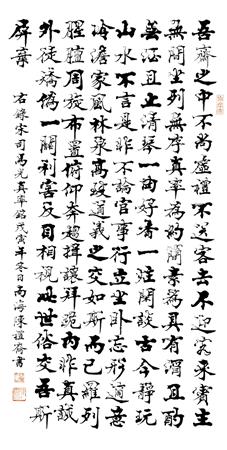 吾齋之中不尚虛禮不送客去不迎客來賓主
無間坐列無序真率為約簡素為具有酒且酌
無酒且止清琴一曲好香一炷閑談古今靜玩
山水不言是非不論官事行立坐卧忘形適意
冷澹家風林泉高致道義之交如斯而已羅列
腥膻周旋布置俯仰奔趨揖讓拜跪內非真誠
外徒矯偽一關利害反目相視此世俗交吾斯
屏棄
右錄宋司馬光真率銘戊寅年冬日南海陳齋書